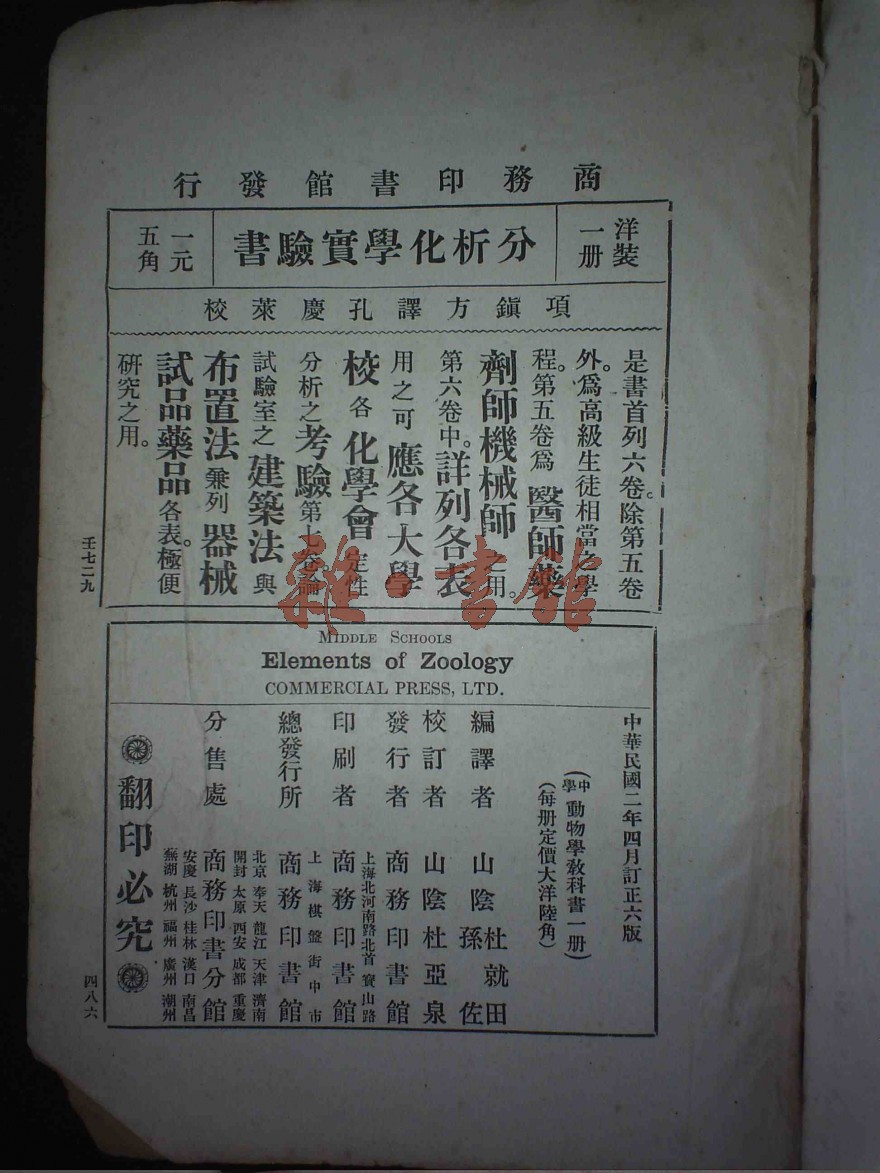 商務印書館發行
洋裝一册
分析化學實驗書
一元五角
項鎭方譯孔慶萊校
是書首列六卷。除第五卷
外。爲高級生徒相當之學
程。第五卷爲醫師藥
劑師機械師之用。
第六卷中。詳列各表
用之可應各大學
校各化學會定性
分析之考驗第七卷論
試驗室之建築法與
布置法兼列器械
試品藥品各表。極便
研究之用。
壬七二九
雜·書館
MIDDLE SCHOOLS
Elements of Zoology
COMMERCIAL PRESS, LTD.
中華民國二年四月訂正六版
(中學動物學教科書一册)
(每册定價大洋陸角)
編譯者 山陰 杜就田 孫佐
校訂者 山陰杜亞泉
發行者 商務印書館
上海北河南路北首寶山路
印刷者 商務印書館
上海棋盤街中市
總發行所 商務印書館
北京 奉天 龍江 天津 濟南
開封 太原 西安 成都 重慶
分售處 商務印書分館
安慶 長沙 桂林 漢口 南昌
蕪湖 杭州 福州 廣州 潮州
翻印必究
四八六